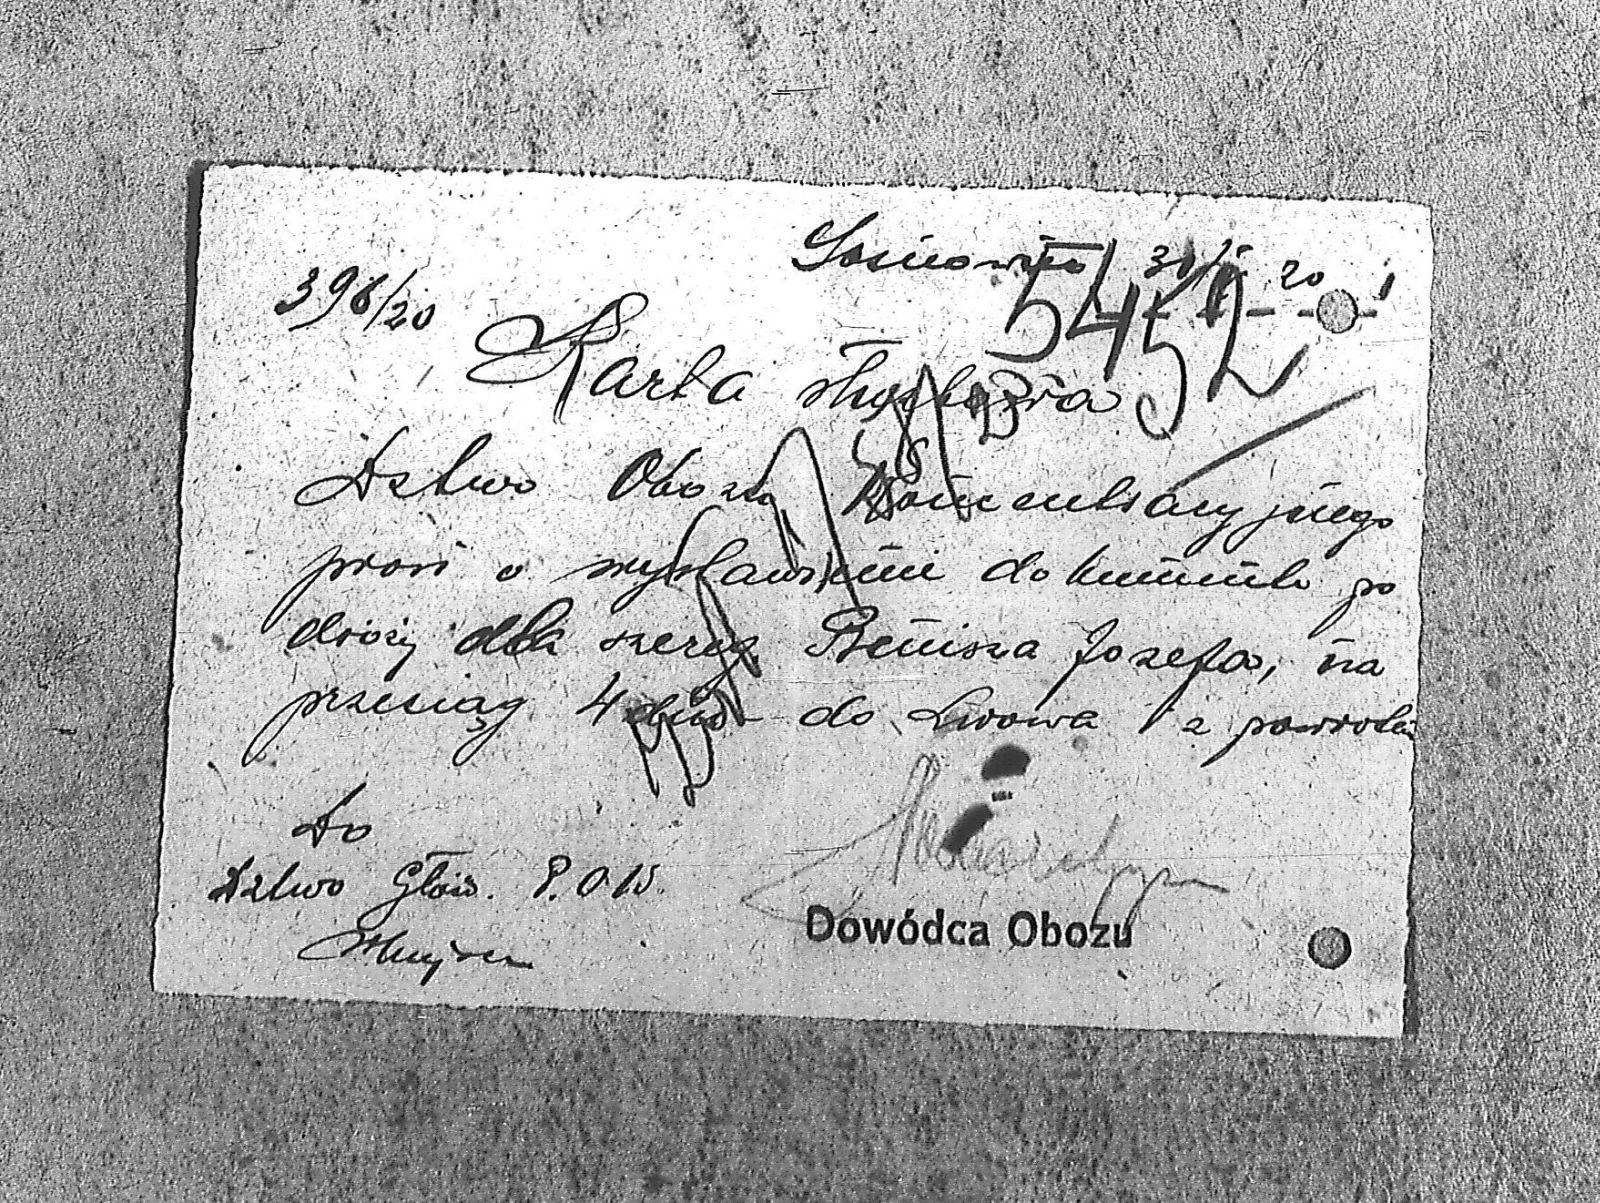 Sosnowiec 31/X 20
398/20
5452
Karta służbowa
Dztwo Obozu Koncentracyjnego
prosi o wystawienie dokumentu po
dróży dla szereg Benisza Jozefa, na
przeciąg 4 dni do Lwowa i z powrotem
Do
Dztwo Głów. P.O.W.
Dowódca Obozu